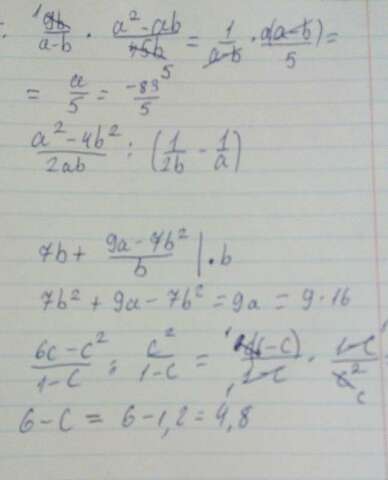 9b/(a-b) · (a²-ab)/(45b) = 1/(a-b) · a(a-b)/5 =
= a/5 = -83/5
(a²-4b²)/(2ab) : (1/(2b) - 1/a)
7b + (9a-7b²)/b | · b
7b² + 9a - 7b² = 9a = 9·16
(6c-c²)/(1-c) : c²/(1-c) = c(6-c)/(1-c) · (1-c)/c²
6-c = 6-1,2 = 4,8